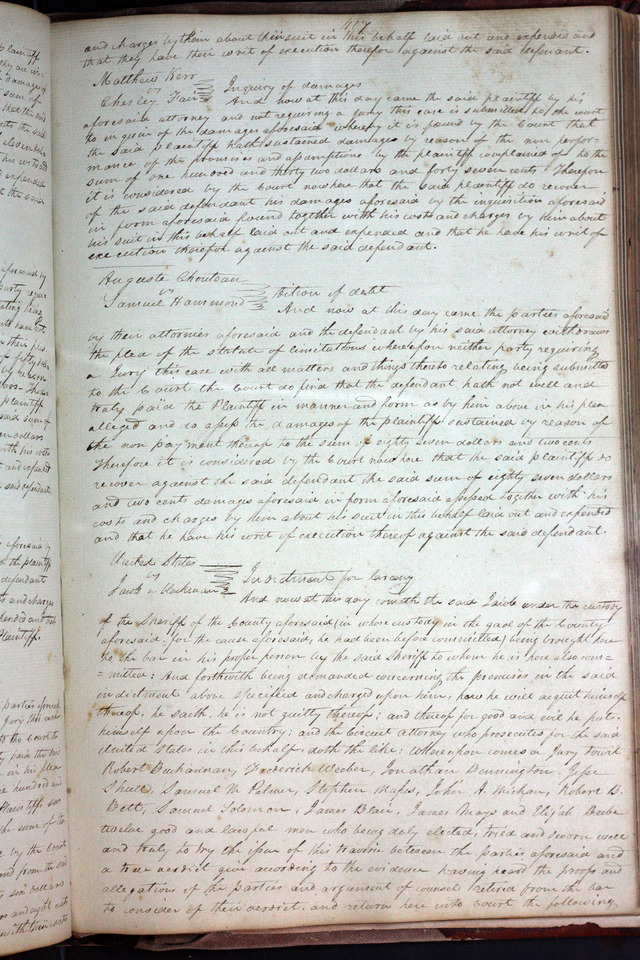 417
and charges by them about their suit in this behalf laid out and expended and
that they have their writ of execution therefor against the said defendant.
Matthew Kerr
vs
Chesley Fair
Inquiry of damages
And now at this day came the said plaintiff by his
aforesaid attorney and not requiring a Jury this case is submitted to the court
to inquire of the damages aforesaid whereof it is found by the Court that
the said Plaintiff hath sustained damages by reason of the non perfor-
mance of the promises and assumptions by the plaintiff complained of to the
sum of one hundred and thirty two dollars and forty seven cents. Therefore
it is considered by the Court now here that the said plaintiff do recover
of the said defendant his damages aforesaid by the inquisition aforesaid
in form aforesaid found together with his costs and charges by him about
his suit in this behalf laid out and expended and that he have his writ of
execution therefor against the said defendant.
Auguste Chouteau
vs
Samuel Hammond
Petition of debt
And now at this day came the parties aforesaid
by their attornies aforesaid and the defendant by his said attorney withdraws
the plea of the statute of limitations whereupon neither party requiring
a Jury this case with all matters and things thereto relating being submitted
to the Court the Court do find that the defendant hath not well and
truly paid the Plaintiff in manner and form as by him above in his plea
alleged and do assess the damages of the plaintiff sustained by reason of
the non payment thereof to the sum of eighty seven dollars and two cents
Therefore it is considered by the Court now here that he said plaintiff do
recover against the said defendant the said sum of eighty seven dollars
and two cents damages aforesaid in form aforesaid assessed together with his
costs and charges by him about his suit in this behalf laid out and expended
and that he have his writ of execution thereof against the said defendant.
United States
vs
Jacob
Indictment for larceny
And now at this day cometh the said Jacob under the custody
of the Sheriff of the County aforesaid (in whose custody in the gaol of the County
aforesaid, for the cause aforesaid, he had been before committed) being brought here
to the bar in his proper person by the said Sheriff to whom he is here also com-
=mitted: And forthwith being demanded concerning the premises in the said
indictment above specified and charged upon him, how he will acquit himself
thereof, he saith, he is not guilty thereof; and thereof for good and evil he puts
himself upon the Country: and the Circuit attorney who prosecutes for the said
United States in this behalf, doth the like: Whereupon comes a Jury towit
Robert Buchannan, Frederick Weeber, Jonathan Dennington, Jesse
Shull, Samuel W. Palmer, Stephen Maples, John A. Michan, Robert B.
Bett, Samuel Solomon, James Blair, James Mays and Elijah Beebe
twelve good and lawful men who being duly elected, tried and sworn well
and truly to try the issue of this traverse between the parties aforesaid and
a true verdict give according to the evidence having heard the proofs and
allegations of the parties and argument of counsel retired from the bar
to consider of their verdict. and return here into Court the following